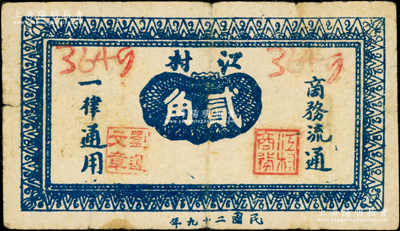 3649
3649
江村
貳角
商務流通
一律通用
江村商務
文章
民國二十九年